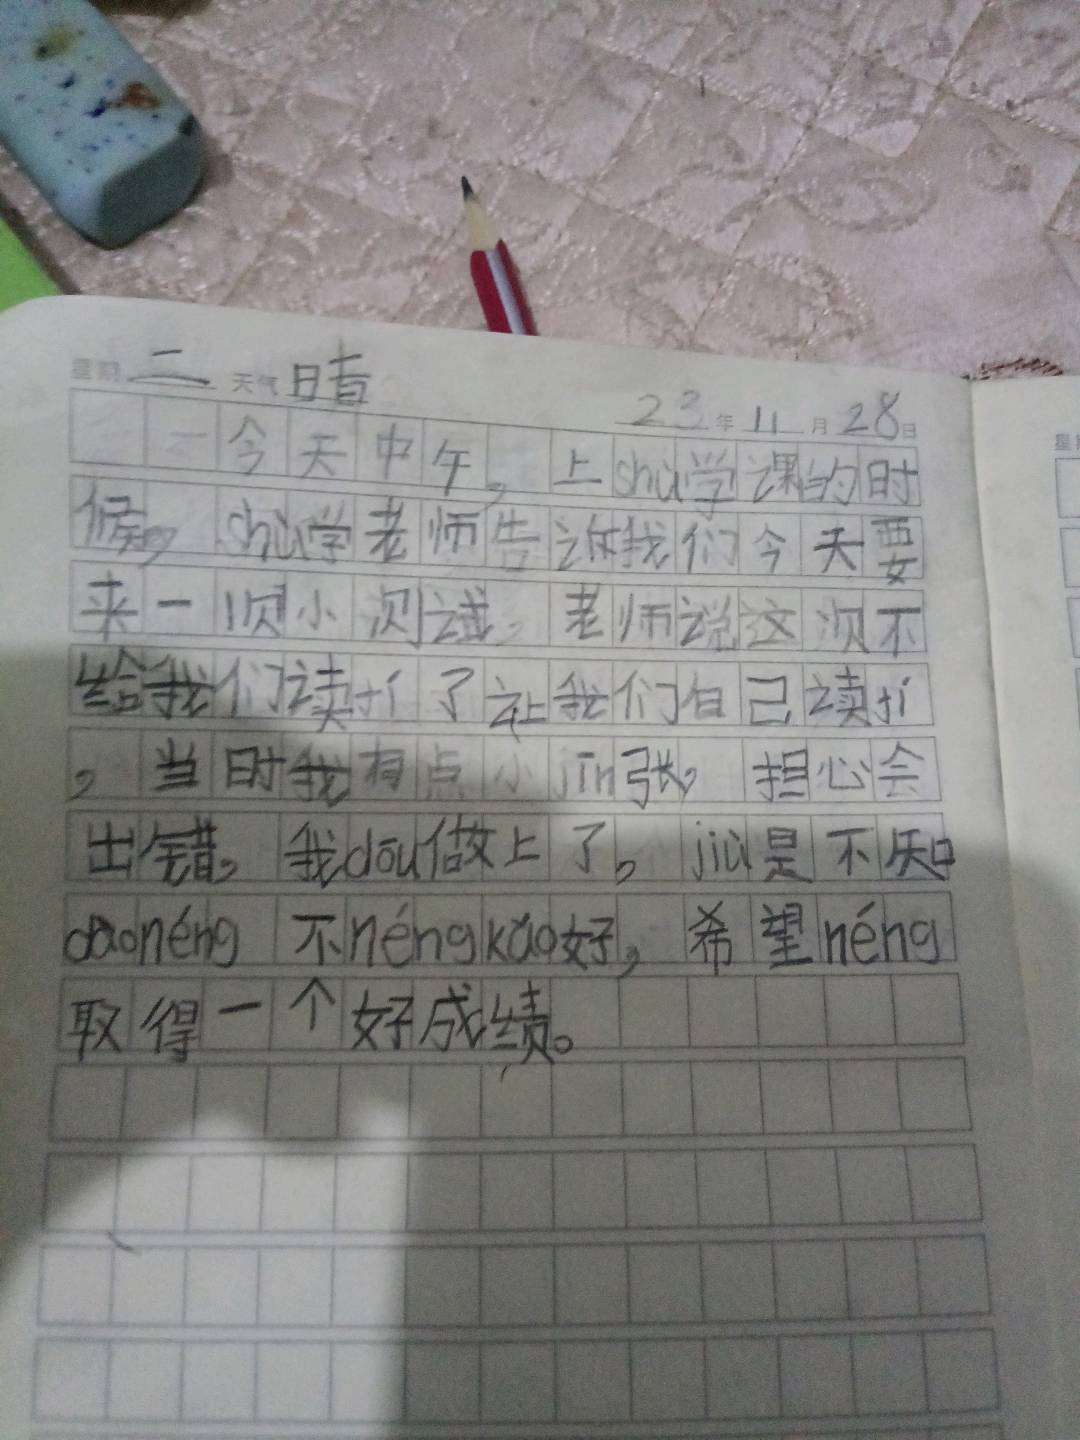 星期 二 天气 晴
23年 11月 28日
今天中午，上shù学课的时
候，shù学老师告诉我们今天要
来一项小测试，老师说这次不
给我们读
了让我们自己读
，当时我有点小jǐn张，担心会
出错。我dōu做上了，jiù是不知
dàonéng不néngkǎo好，希望néng
取得一个好成绩。